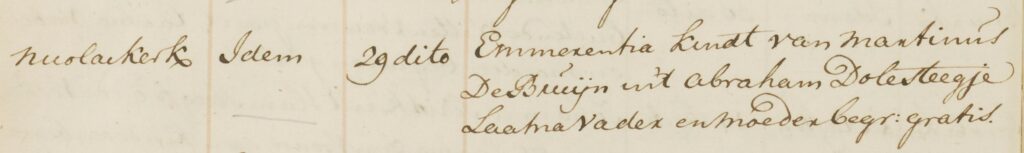 nicolaikerk Idem 29 dito Emmerentia kindt van Martinus
De Bruijn uit Abraham Dolesteegje
Laat na Vader en moeder begr: gratis.